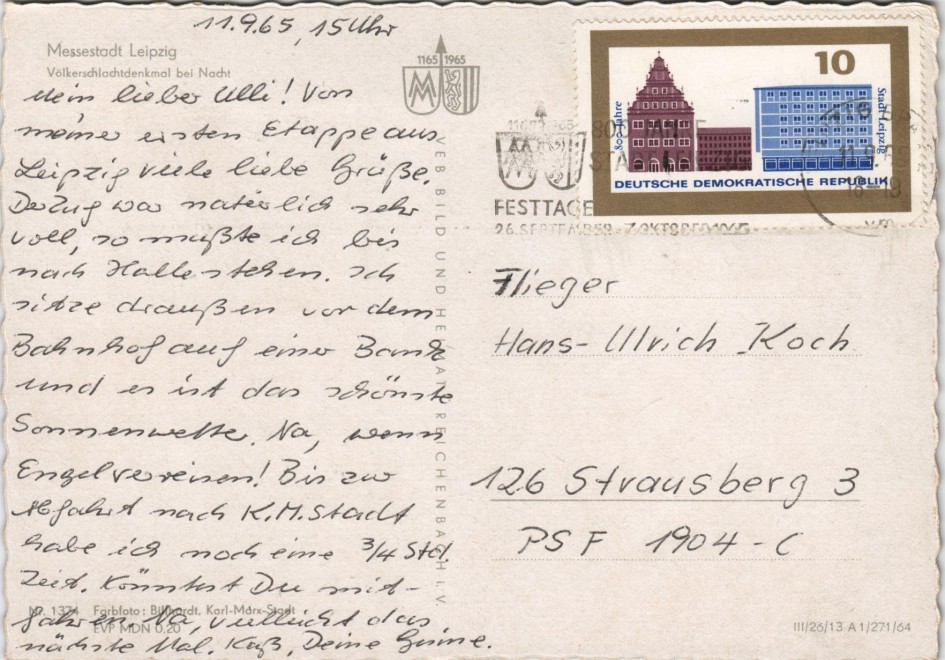 11.9.65, 15 Uhr
Messestadt Leipzig
Völkerschlachtdenkmal bei Nacht
1165 1965
Mein lieber Ulli! Von
meiner ersten Etappe aus
Leipzig viele liebe Grüße.
Der Zug war natürlich sehr
voll, so mußte ich bis
nach Halle stehen. Ich
sitze draußen vor dem
Bahnhof auf einer Bank
und es ist das schönste
Sonnenwetter. Na, wenn
Engel verreisen! Bis zur
Abfahrt nach K.M.Stadt
habe ich noch eine 3/4 Std.
Zeit. Könntest Du mit-
fahren. Na, vielleicht das
nächste Mal. Kuß, Deine
Nr. 1374 Farbfoto: Bildhardt, Karl-Marx-Stadt
EVP MDN 0.20
VEB BILD UND HEIMAT REICHENBACH I. V.
10
800 Jahre
Stadt Leipzig
DEUTSCHE DEMOKRATISCHE REPUBLIK
1165 1965
800 JAHRE
STADT
FESTTAGE
26. SEPTEMBER - 7. OKTOBER 1965
11.9.65
18-19
Flieger
Hans-Ulrich Koch
126 Strausberg 3
PSF 1904-C
III/26/13 A 1/271/64